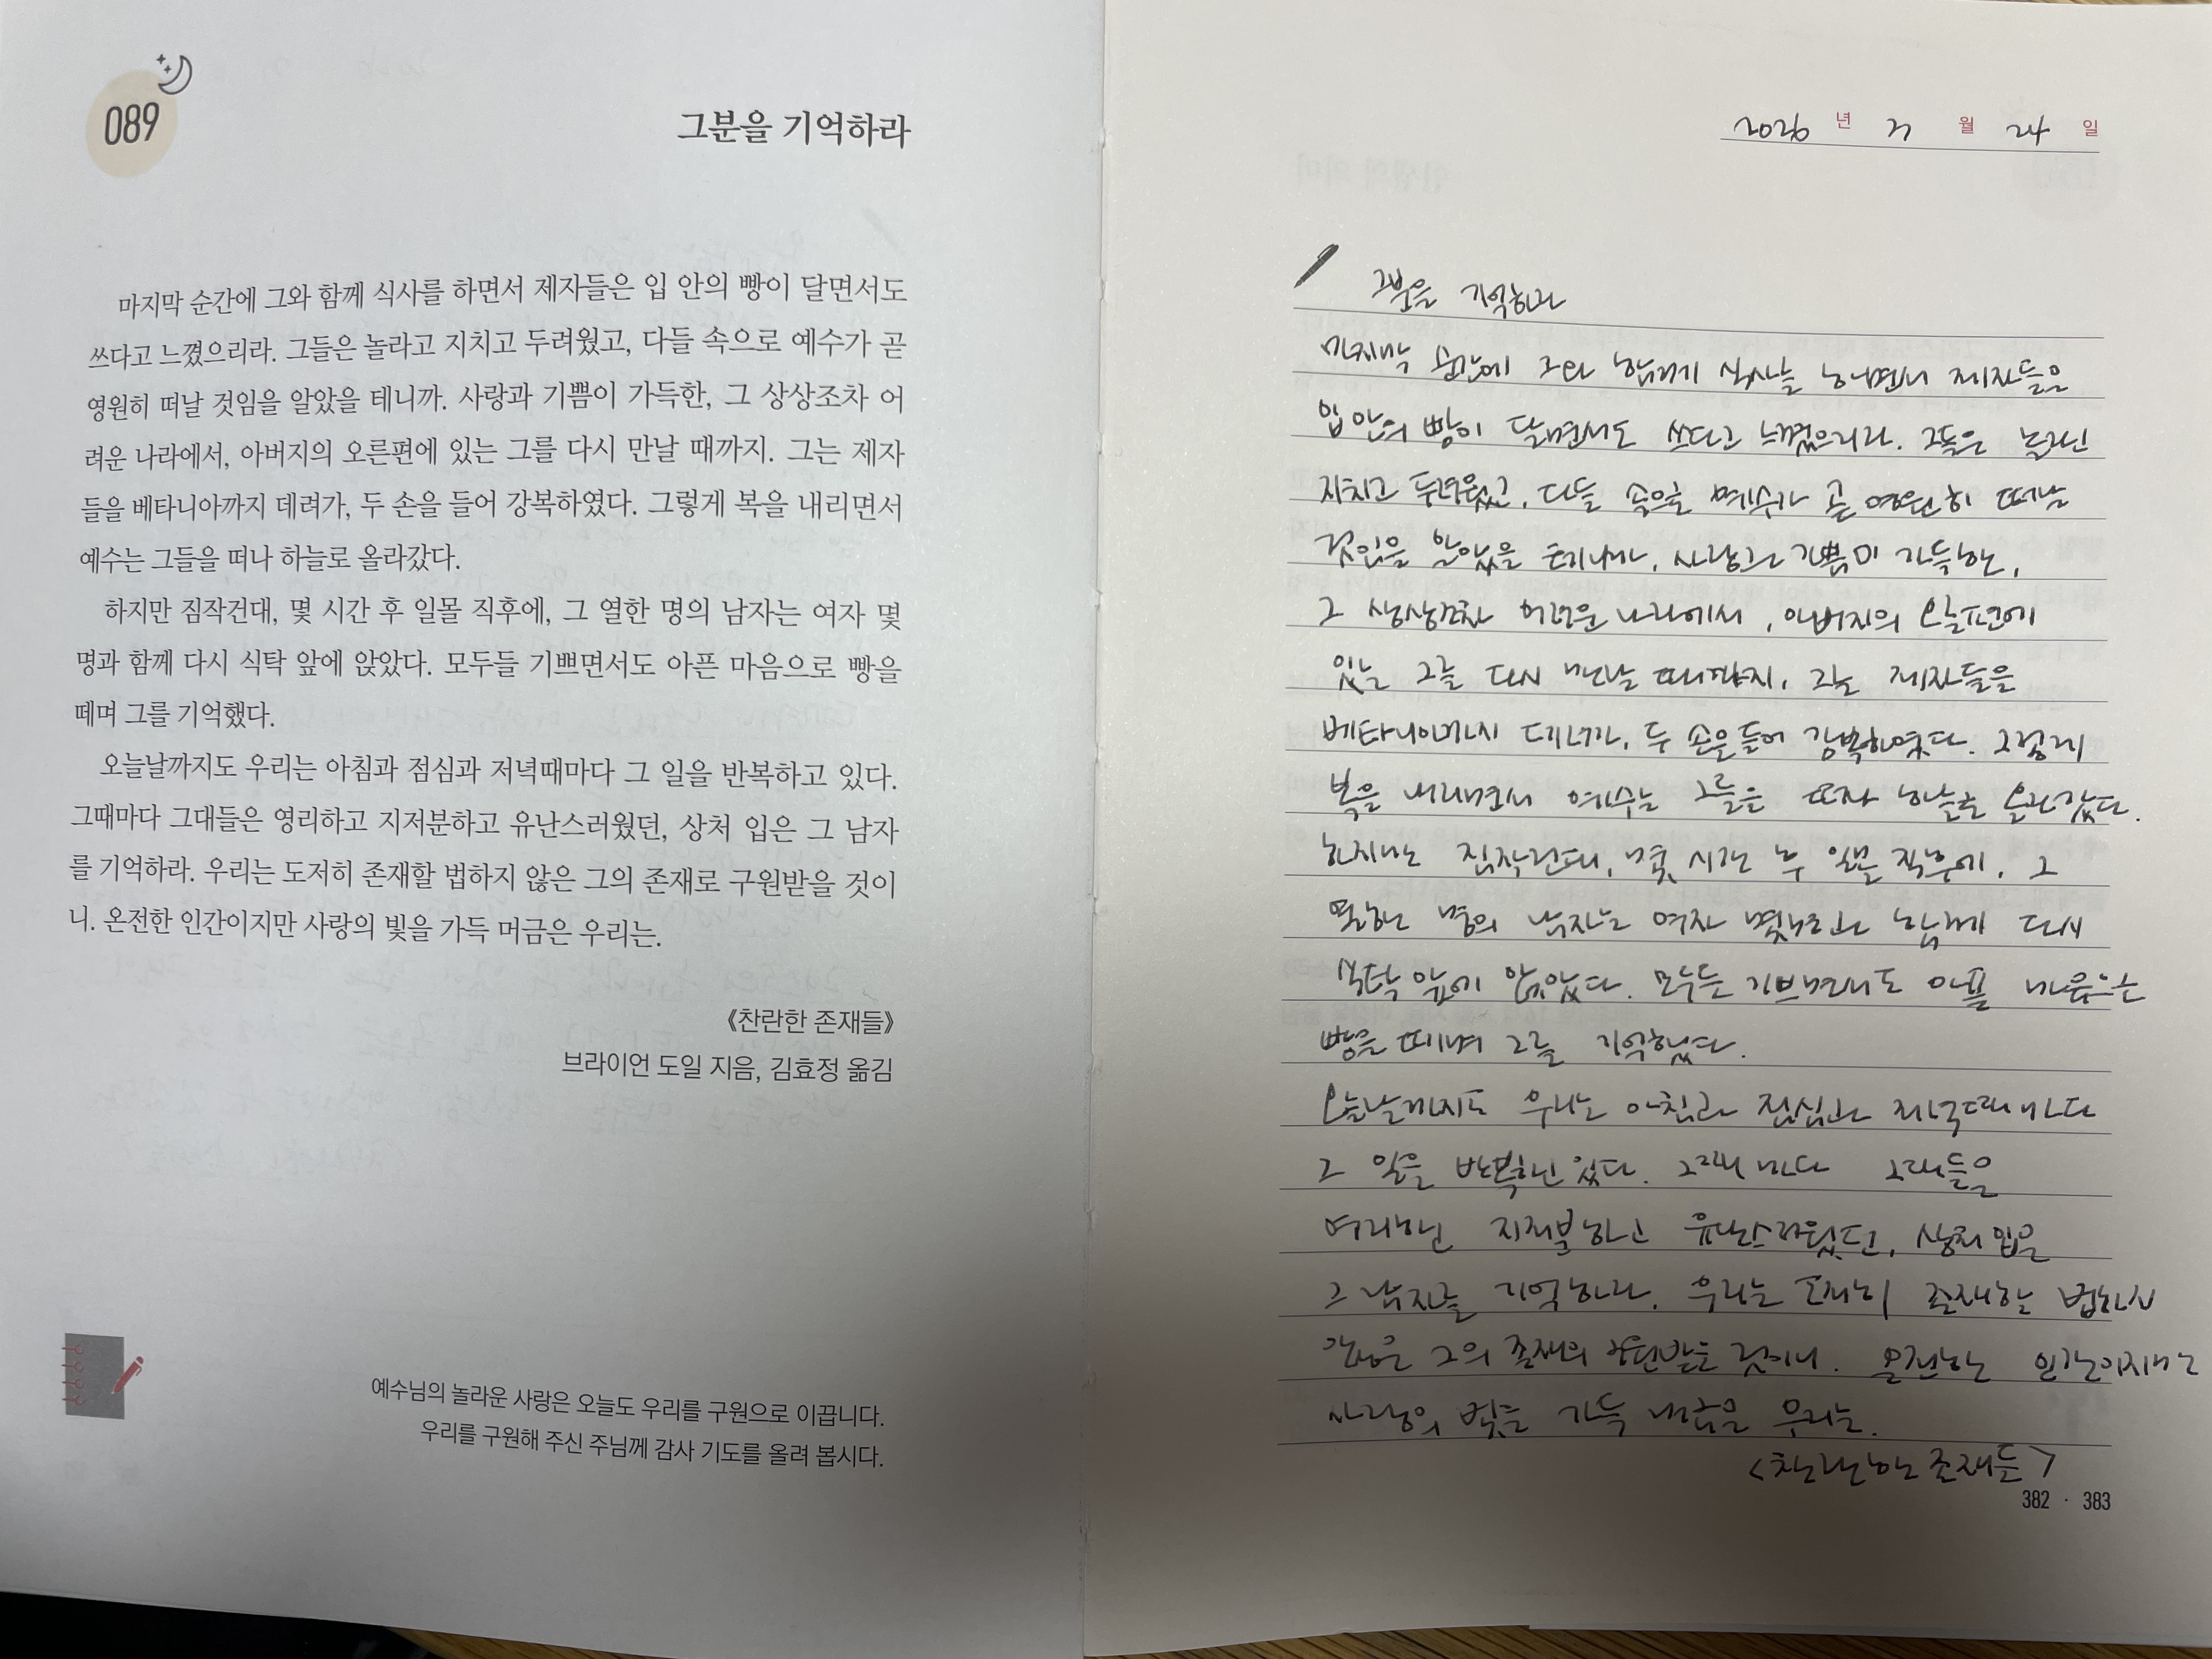 089
그분을 기억하라
마지막 순간에 그와 함께 식사를 하면서 제자들은 입 안의 빵이 달면서도
쓰다고 느꼈으리라. 그들은 놀라고 지치고 두려웠고, 다들 속으로 예수가 곧
영원히 떠날 것임을 알았을 테니까. 사랑과 기쁨이 가득한, 그 상상조차 어
려운 나라에서, 아버지의 오른편에 있는 그를 다시 만날 때까지. 그는 제자
들을 베타니아까지 데려가, 두 손을 들어 강복하였다. 그렇게 복을 내리면서
예수는 그들을 떠나 하늘로 올라갔다.
하지만 짐작건대, 몇 시간 후 일몰 직후에, 그 열한 명의 남자는 여자 몇
명과 함께 다시 식탁 앞에 앉았다. 모두들 기쁘면서도 아픈 마음으로 빵을
떼며 그를 기억했다.
오늘날까지도 우리는 아침과 점심과 저녁때마다 그 일을 반복하고 있다.
그때마다 그대들은 영리하고 지저분하고 유난스러웠던, 상처 입은 그 남자
를 기억하라. 우리는 도저히 존재할 법하지 않은 그의 존재로 구원받을 것이
니. 온전한 인간이지만 사랑의 빛을 가득 머금은 우리는.
《찬란한 존재들》
브라이언 도일 지음, 김효정 옮김
예수님의 놀라운 사랑은 오늘도 우리를 구원으로 이끕니다.
우리를 구원해 주신 주님께 감사 기도를 올려 봅시다.
2026 년 월 24 일
그분을 기억하라
마지막 순간에 그와 함께 식사를 하면서 제자들은
입 안의 빵이 달면서도 쓰다고 느꼈으리라. 그들은 놀라고
지치고 두려웠고, 다들 속으로 예수가 곧 영원히 떠날
것임을 알았을 테니까. 사랑과 기쁨이 가득한,
그 상상조차 어려운 나라에서, 아버지의 오른편에
있는 그를 다시 만날 때까지. 그는 제자들을
베타니아까지 데려가, 두 손을 들어 강복하였다. 그렇게
복을 내리면서 예수는 그들을 떠나 하늘로 올라갔다.
하지만 짐작건대, 몇 시간 후 일몰 직후에, 그
열한 명의 남자는 여자 몇명과 함께 다시
식탁 앞에 앉았다. 모두들 기쁘면서도 아픈 마음으로
빵을 떼며 그를 기억했다.
오늘날까지도 우리는 아침과 점심과 저녁때마다
그 일을 반복하고 있다. 그때마다 그대들은
영리하고 지저분하고 유난스러웠던, 상처 입은
그 남자를 기억하라. 우리는 도저히 존재할 법하지
않은 그의 존재로 구원받을 것이니. 온전한 인간이지만
사랑의 빛을 가득 머금은 우리는.
<찬란한 존재들>
382 · 383